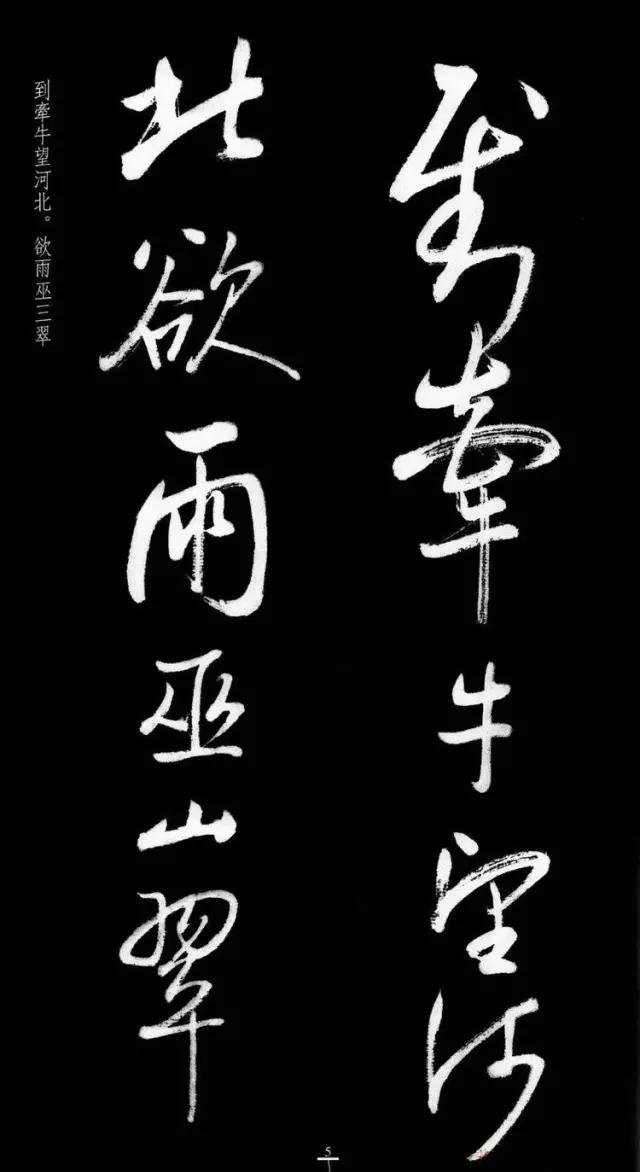 到牽牛望河
北欲雨巫山翠
到牵牛望河北。欲雨巫三翠
5